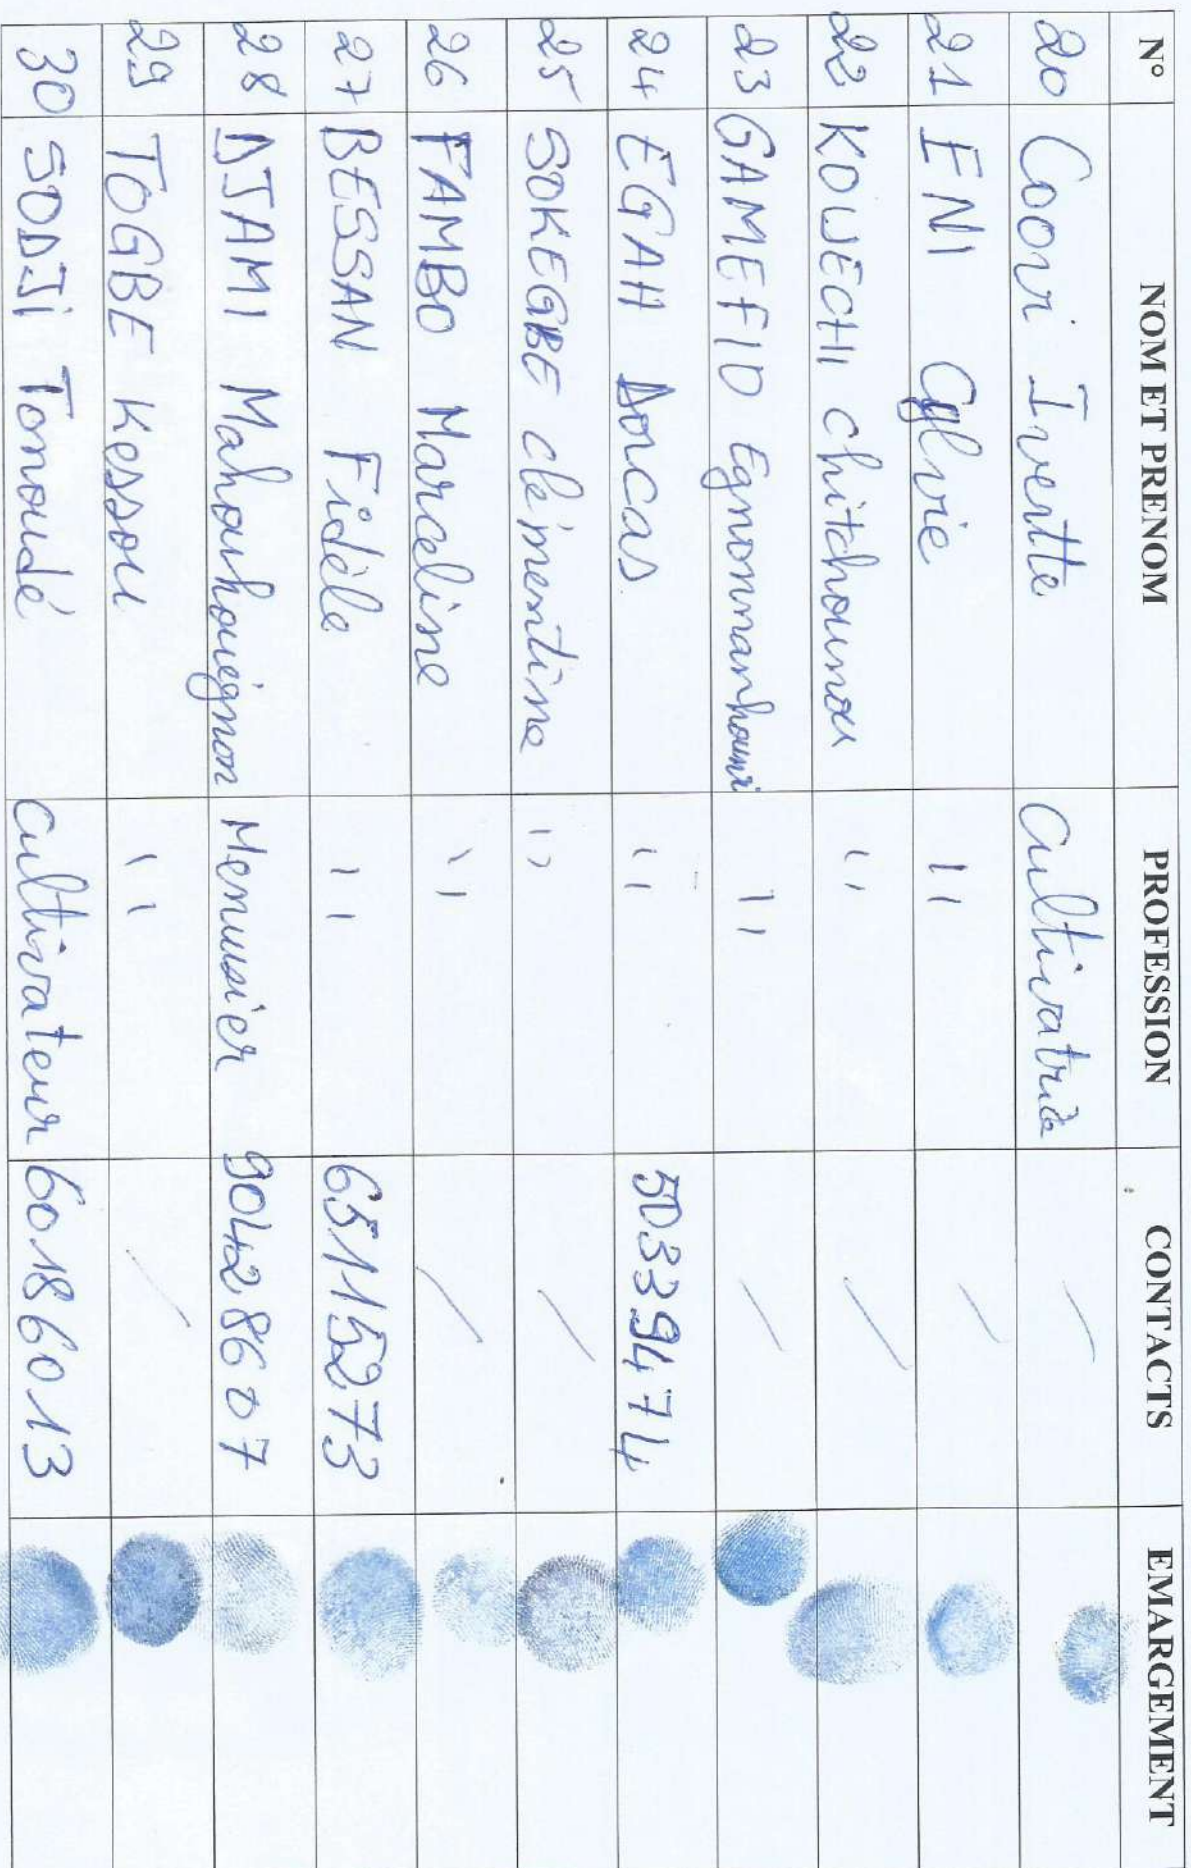 N° NOM ET PRENOM PROFESSION CONTACTS EMARGEMENT
20 Coovi Ivertte Cultivatrice /
21 ENI Cylvie '' /
22 KOUECHI Chitchounou '' /
23 GAMEFIO Egnonmanhoun '' /
24 EGAH Dorcas '' 50339474
25 SOKEGBE Clémentine '' /
26 FAMBO Marceline '' /
27 BESSAN Fidèle '' 65115273
28 DJAMI Mahouhouégnon Menuisier 90428607
29 TOGBE Kessou '' /
30 SODJi Tonoudé Cultivateur 60186013